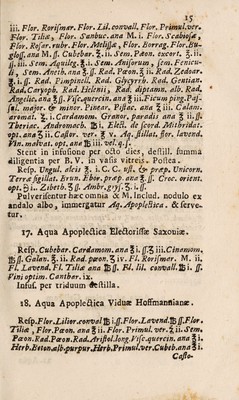 15
iii. Flor. Rorismar. Flor. Lil. convall. Flor. Primul. ver.
Flor. Tiliæ, Flor. Sambuc. ana M. i. Flor. Scabiosæ,
Flor. Rosar. rubr. Flor. Melissæ, Flor. Borrag. Flor. Bu-
gloss. ana M. ß. Cubebar. ℥. ii. Sem. Pæon. excort. ℥. ii.
ß. ii. Sem. Aquileg. ℥. i. Sem. Anisorum, sem. Fœnicu-
li, Sem. Aneth. ana ʒ. ß. Rad. Pæon. ℥ ii. Rad. Zedoar.
℥. i. ß. Rad. Pimpinell. Rad. Glycyrrh. Rad. Gentian.
Rad. Caryoph. Rad. Helenii, Rad. diptamn. alb. Rad.
Angelic. ana ℥ ß. Visc. quercin. ana ℥ iii. Ficuum ping. Pas-
sul. major. & minor. Pinear. Pistac. ana ℥ iii. Calami
aromat. ℥. i. Cardamom. Granor. paradis ana ℥ ii. ß.
Theriac. Andromach. ℔ i. Elect. de scord. Mithridat.
opt. ana ℥ ii. Castor. ver. ℥ v. Aq. stillat. flor. lavend.
Vin. malvat. opt. ana ℔ iii. vel. q. s.
Stent in infusione per octo dies, destill. summa
diligentia per B. V. in vasis vitreis. Postea.
Resp. Ungul. alcis ℥. i. C. C. ust. & præp. Unicorn.
Terræ sigillat. Brun. Ebor. præp. ana ℥ ß. Croc. orient.
opt. ʒ i. Zibeth. ʒ ß. Ambr. gryʃ. ʒ. i. ß.
Pulverisentur hæc omnia & M. Includ. nodulo ex
andalo albo, immergatur Aq. Apoplectica. & serve-
tur.
17. Aqua Apoplectica Electorissæ Saxoniæ.
Resp. Cubebar. Cardamom. ana ℥ i. ß. ℥ iii. Cinamom.
℔ ß. Galan. ℥. ii. Rad. pæon. ℥ iv. Fl. Rorismar. M. ii.
Fl. Lavend. Fl. Tiliæ ana ℔ ß. Fl. lil. convall. ℔ i. ß.
Vini optim. Canthar. ix.
Infus. per triduum destilla.
18. Aqua Apoplectica Viduæ Hoffmannianæ.
Resp. Flor. Lilior. convall ℔ i. ß. Flor. Lavend. ℔ ß. Flor.
Tiliæ, Flor. Pæon. ana ℥ ii. Flor. Primul. ver. ℥ ii. Sem.
Pæon. Rad. Pæon. Rad. Aristol. long. Visc. quercin. ana ℥ i.
Herb. Beton. alb. purpur. Herb. Primul. ver. Cubeb. ana ℥ i.
Casto-